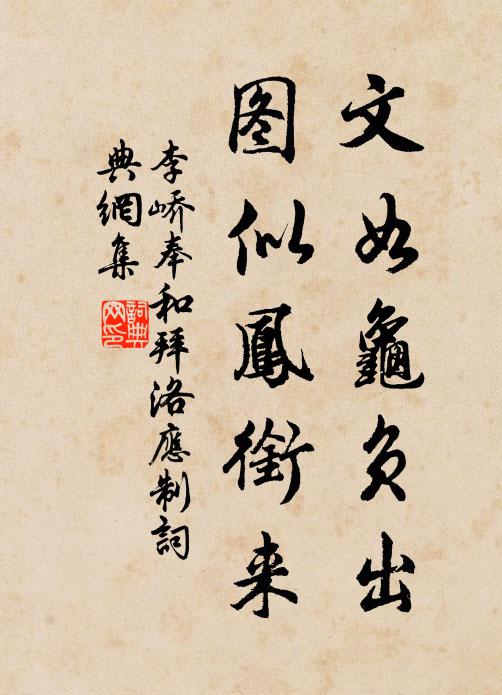 文如龜负出
图似鳳銜来
李峤奉和拜洛應制詞
典網集
詞典网印